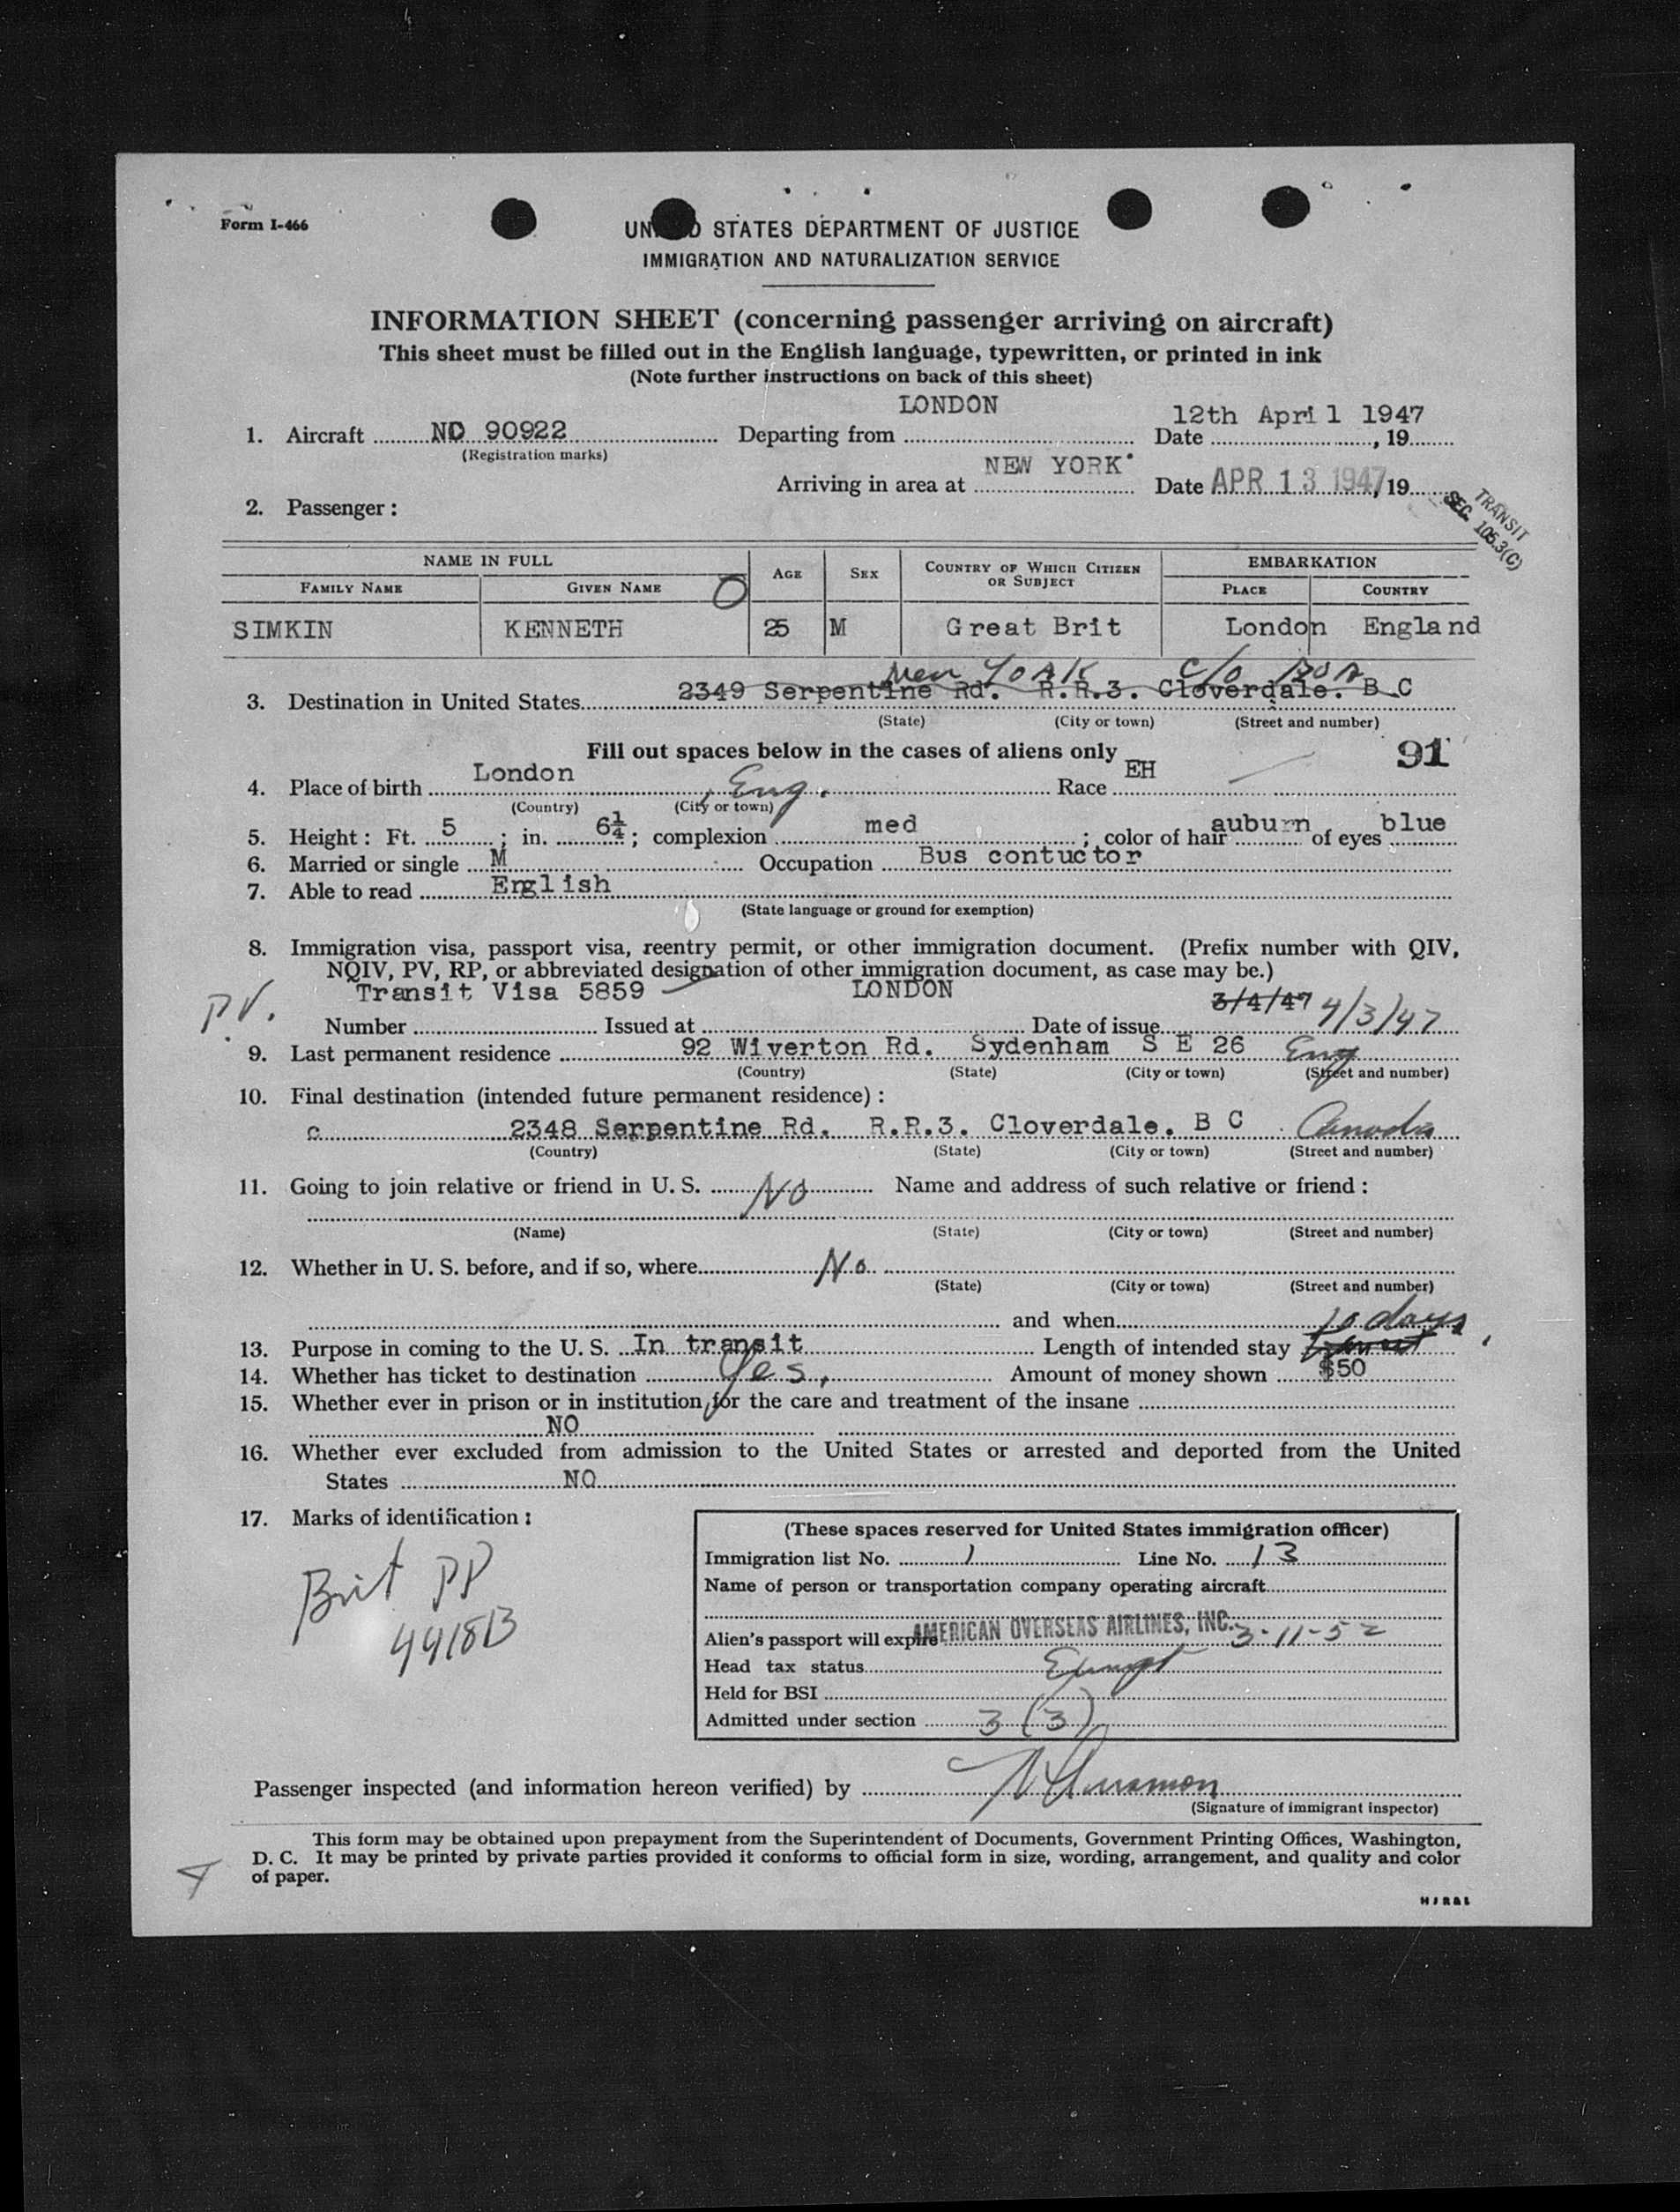 Form I-466
UN D STATES DEPARTMENT OF JUSTICE
IMMIGRATION AND NATURALIZATION SERVICE
INFORMATION SHEET (concerning passenger arriving on aircraft)
This sheet must be filled out in the English language, typewritten, or printed in ink
(Note further instructions on back of this sheet)
1. Aircraft NC 90922 Departing from LONDON Date 12th April 1947, 19
(Registration marks)
Arriving in area at NEW YORK Date APR 13 1947, 19
TRANSIT
SEC. 105.3(C)
2. Passenger:
NAME IN FULL AGE SEX COUNTRY OF WHICH CITIZEN OR SUBJECT EMBARKATION
FAMILY NAME GIVEN NAME PLACE COUNTRY
SIMKIN KENNETH 25 M Great Brit London England
New York c/o
3. Destination in United States 2349 Serpentine Rd. R.R.3. Cloverdale. B C
(State) (City or town) (Street and number)
Fill out spaces below in the cases of aliens only 91
4. Place of birth London, Eng. Race EH
(Country) (City or town)
5. Height: Ft. 5; in. 6¼; complexion med; color of hair auburn of eyes blue
6. Married or single M Occupation Bus contuctor
7. Able to read English
(State language or ground for exemption)
8. Immigration visa, passport visa, reentry permit, or other immigration document. (Prefix number with QIV,
NQIV, PV, RP, or abbreviated designation of other immigration document, as case may be.)
P.V. Number Transit Visa 5859 Issued at LONDON Date of issue 3/4/47 4/3/47
9. Last permanent residence 92 Wiverton Rd. Sydenham S E 26 Eng
(Country) (State) (City or town) (Street and number)
10. Final destination (intended future permanent residence):
c 2348 Serpentine Rd. R.R.3. Cloverdale. B C Canada
(Country) (State) (City or town) (Street and number)
11. Going to join relative or friend in U. S. No Name and address of such relative or friend:
(Name) (State) (City or town) (Street and number)
12. Whether in U. S. before, and if so, where No
(State) (City or town) (Street and number)
and when
13. Purpose in coming to the U. S. In transit Length of intended stay 10 days
14. Whether has ticket to destination Yes, Amount of money shown $50
15. Whether ever in prison or in institution for the care and treatment of the insane
NO
16. Whether ever excluded from admission to the United States or arrested and deported from the United
States NO
17. Marks of identification:
Brit PP
44181B
(These spaces reserved for United States immigration officer)
Immigration list No. 1 Line No. 13
Name of person or transportation company operating aircraft
AMERICAN OVERSEAS AIRLINES, INC.
Alien's passport will expire 3-11-52
Head tax status Exempt
Held for BSI
Admitted under section 3 (3)
Passenger inspected (and information hereon verified) by
(Signature of immigrant inspector)
This form may be obtained upon prepayment from the Superintendent of Documents, Government Printing Offices, Washington,
D. C. It may be printed by private parties provided it conforms to official form in size, wording, arrangement, and quality and color
of paper.